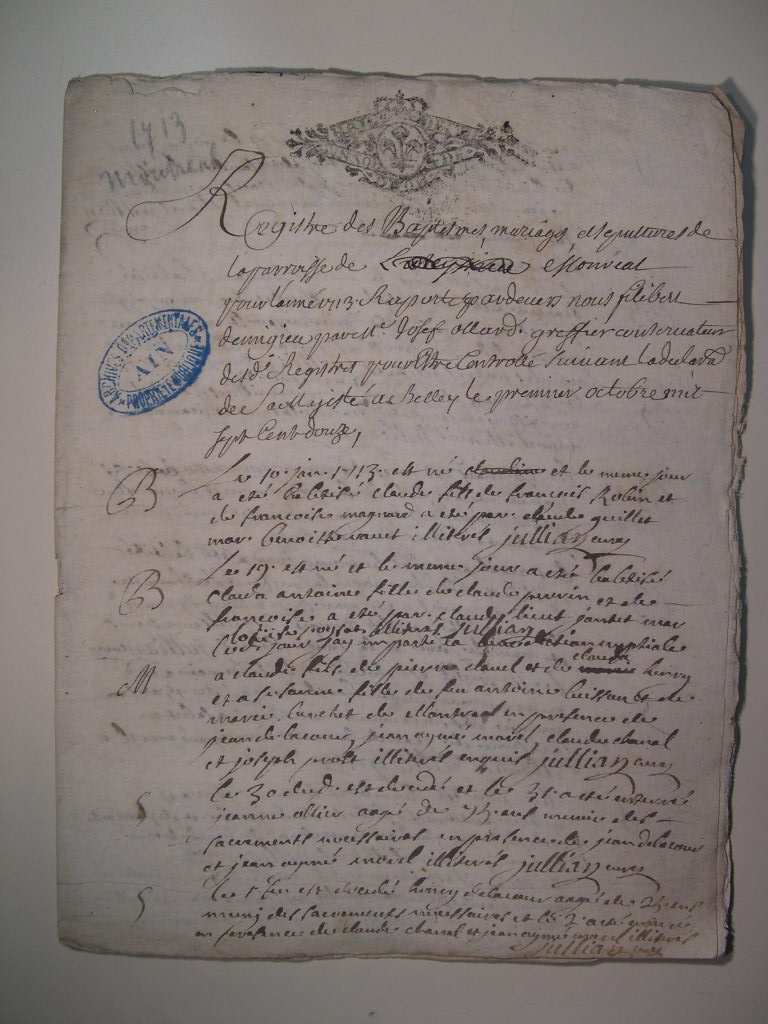 1713
Montreal
Registre des Baptesmes mariages et sepultures de
la parroisse de Montreal
pour lannée 1713. Raporte pardevers nous filibert
par Mr. Josef ollard greffier conservateur
desd. Registres pour Estre Controllé suivant la declara
de Sa Majesté a belley le premier octobre mil
sept Cent douze,
ARCHIVES DÉPARTEMENTALES
AIN
PROPRIÉTÉ PUBLIQUE
B
Le 10. jan. 1713. est né claudine et le meme jour
a été babtisé claude fils de francois Robin et
de francoise magnard a été par. claude guillet
mar. benoitte illiterés jullian curé
B
Le 19. est né et le meme jour a été babtisé
clauda antoine fille de claude perrin et de
francoise a été par. claude mar
illiterés jullian
cedit jour jay imparti la benediction nuptiale
M
a claude fils de pierre clavel et de clauda
et a susanne fille de feu antoine buisson et de
marie de Montreal en presence de
jean delacour, jean aymé morel, claude chanal
et joseph prost illiterés enquis jullian curé
S
le 30 dud. est decedé et le 31 a été enterré
jeanne ollier agée de 75 ans munie des
sacrements necessaires en presence de jean delacour
et jean aymé morel illiterés jullian curé
S
le 1 est decedé delacour agé de ans
muni des sacrements necessaires et le 2 a été enterré
en presence de claude chanal et jean aymé morel illiterés
jullian curé